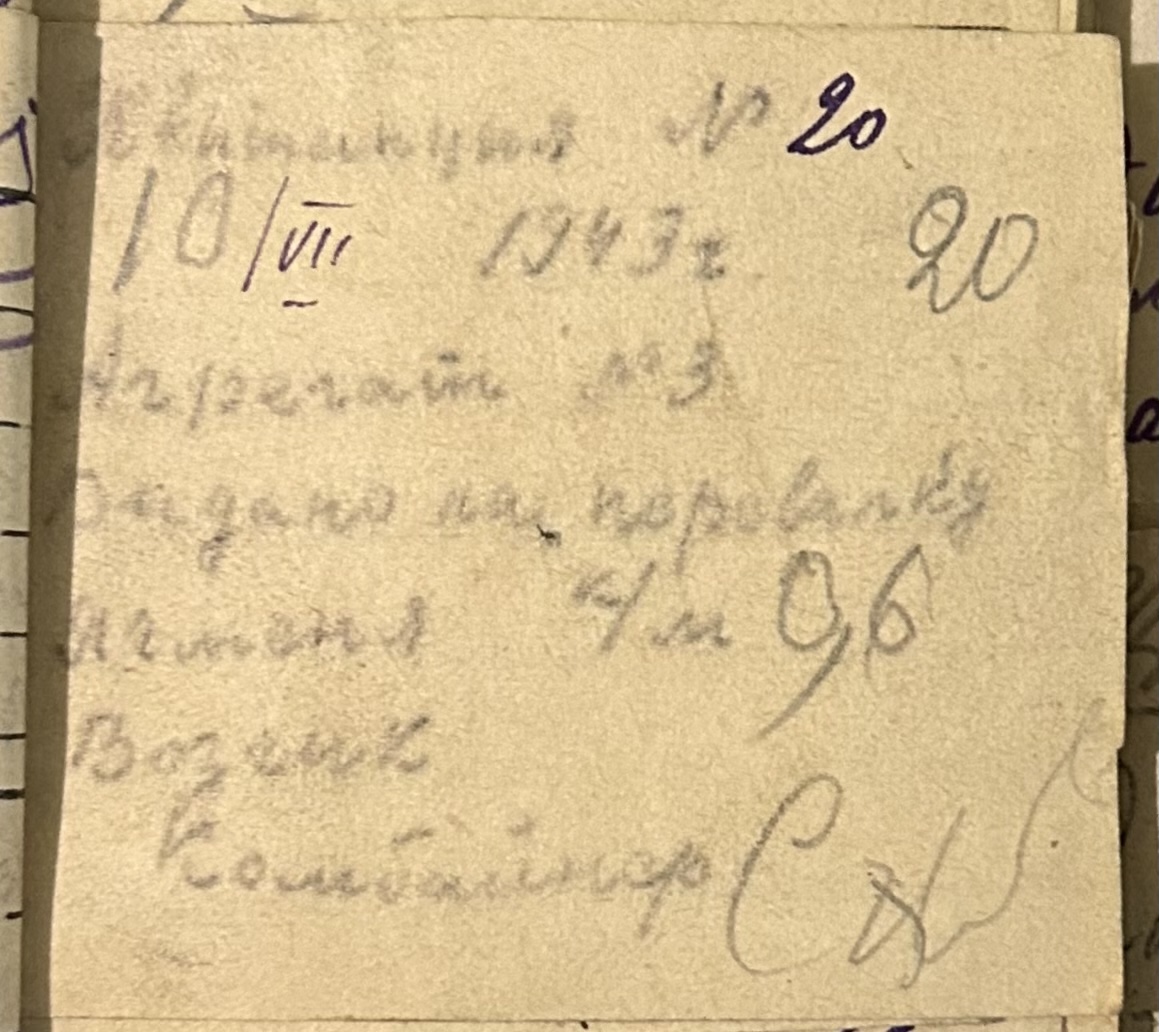 Квитанция № 20
10/VII 1943 г. 20
Агрегат № 3
Здано на перевалку
Ячменя ц/м 0,6
Возчик
Комбайнер